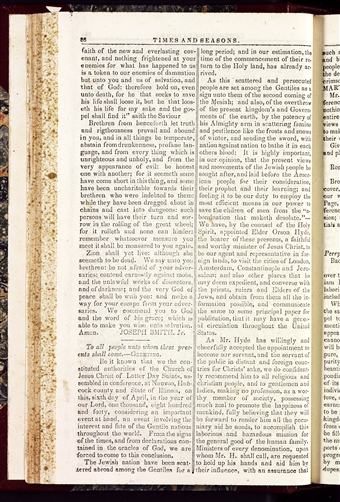 86
TIMES AND SEASONS.
faith of the new and everlasting cov-
enant, and nothing frightened at your
enemies for what has happened to us
is a token to our enemies of damnation
but unto you and us of salvation, and
that of God: therefore hold on, even
unto death, for he that seeks to save
his life shall loose it, but he that loos-
eth his life for my sake and the gos-
pel shall find it" saith the Saviour
Brethren from henceforth let truth
and rigthousness prevail and abound
in you, and in all things be temperate,
abstain from drunkenness, profane lan-
guage, and from every thing which is
unrighteous and unholy, and from the
very appearance of evil: be honest
one with another; for it seemeth some
have come short in this thing, and some
have been uncharitable towards their
brethren who were indebted to them;
while they have been dragged about in
chains and cast into dungeons: such
persons will have their turn and sor-
row in the rolling of the great wheel;
for it rolleth and none can hinder:
remember whatsoever measure you
meet it shall be measured to you again.
Zion shall yet live: although she
seemeth to be dead. We say unto you
brethren: be not afraid of your adver-
saries; contend earnestly against mobs,
and the unlawful works of dissenters,
and of darkness; and the very God of
peace shall be with you: and make a
way for your escape from your adver-
saries. We commend you to God
and the word of his grace; which is
able to make you wise unto salvation.
Amen. JOSEPH SMITH, Jr.
To all people unto whom these pres-
ents shall come,—GREETING.
Be it known that we the con-
stituted authorities of the Church of
Jesus Christ of Latter Day Saints, as-
sembled in conference, at Nauvoo, Han-
cock county and State of Illinois, on
this, sixth day of April, in the year of
our Lord, one thousand, eight hundred
and forty, considering an important
event at hand, an event involving the
interest and fate of the Gentile nations
throughout the world. From the signs
of the times, and from declarations con-
tained in the oracles of God, we are
forced to come to this conclusion.
The Jewish nation have been scat-
tered abroad among the Gentiles for a
long period; and in our estimation, the
time of the commencement of their re-
turn to the Holy Land, has already ar-
rived.
As this scattered and persecuted
people are set among the Gentiles as a
sign unto them of the second coming of
the Mesiah; and also, of the overthrow
of the present kingdom's and govern-
ments of the earth, by the potency of
his Almighty arm in scattering famine
and pestilence like the frosts and snows
of winter, and sending the sword, with
nation against nation to bathe it in each
others blood. It is highly important,
in our opinion, that the present views
and movements of the Jewish people be
sought after, and laid before the Amer-
ican people for their consideration,
their prophet and their learning; and
feeling it to be our duty to employ the
most efficient means in our power to
save the children of men from the "a-
bomination that maketh desolate."—
We have, by the consent of the Holy
Spirit, appointed Elder Orson Hyde,
the bearer of these presents, a faithful
and worthy minister of Jesus Christ, to
be our agent and representative in for-
eign lands, to visit the cities of London,
Amsterdam, Constantinople and Jeru-
salem; and also other places that he
may deem expedient, and converse with
the priests, rulers and Elders of the
Jews, and obtain from them all the in-
formation possible, and communicate
the same to some principal paper for
publication, that it may have a gener-
al circulation throughout the United
States.
As Mr. Hyde has willingly and
cheerfully accepted the appointment to
become our servant, and the servant of
the public in distant and foreign coun-
tries for Christs' sake, we do confident-
ly recommend him to all religious and
christian people, and to gentlemen and
ladies, making no profession, as a wor-
thy member of society, possessing
much zeal to promote the happiness of
mankind, fully believing that they will
be forward to render him all the pecu-
niary aid he needs, to accomplish this
laborious and hazardous mission for
the general good of the human family.
Ministers of every denomination, upon
whom Mr. H. shall call, are requested
to hold up his hands and aid him by
their influence, with an assurance that